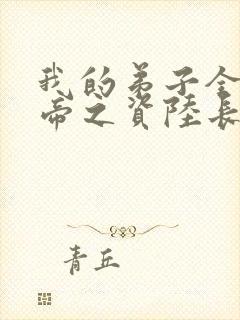 我的弟子全
帝之資陸長
青丘